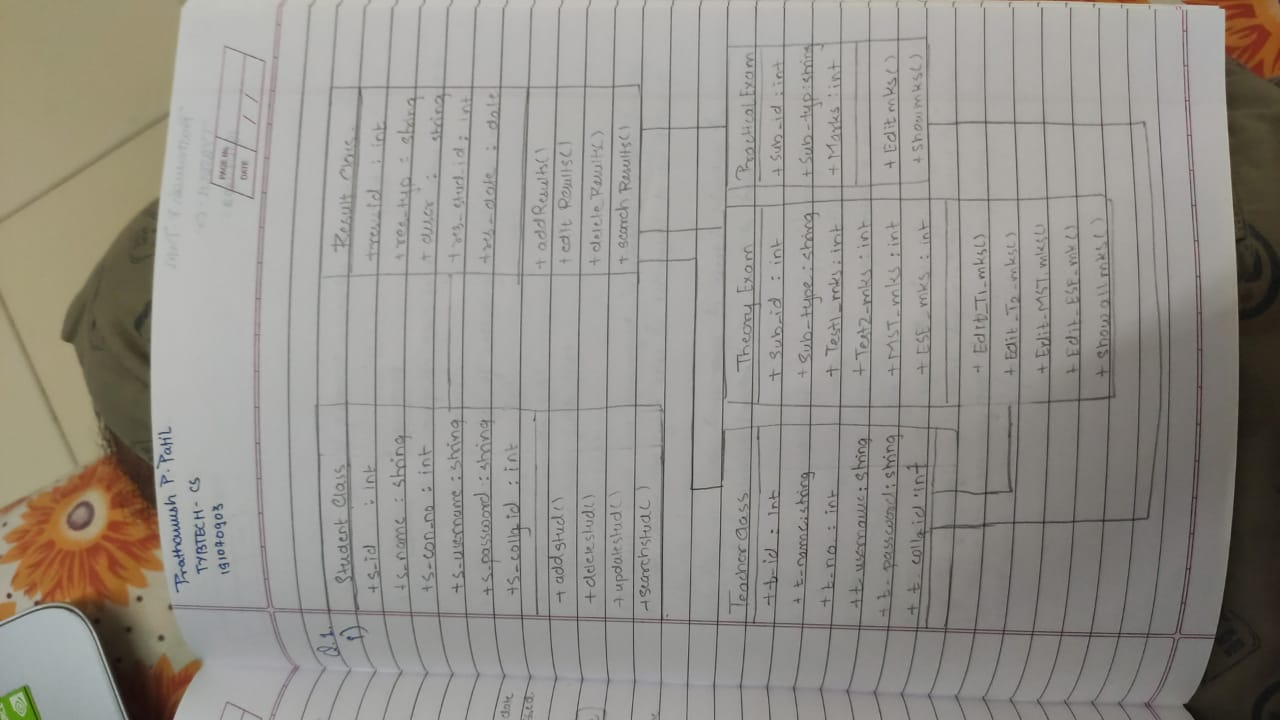 Prathamesh P. Patil
TYBTECH - CS
191070903
PAGE No.
DATE
/ /
Q.1.
1)
Student Class
+ s_id : int
+ s_name : string
+ s_con_no : int
+ s_username : string
+ s_password : string
+ s_collg_id : int
+ addstud()
+ deletestud()
+ updatestud()
+ searchstud()
Result
+ resid : int
+ res_typ : string
+ descr : string
+ res_stud_id : int
+ res_date : date
+ addResults()
+ edit Results()
+ delete Results()
+ search Results()
Teacher class
+ t_id : int
+ t_name : string
+ t_no. : int
+ t_username : string
+ t_password : string
+ t_collg_id : int
Theory Exam
+ Sub_id : int
+ Sub_type : string
+ Test1_mks : int
+ Test2_mks : int
+ MST_mks : int
+ ESE_mks : int
+ Edit_T1_mks()
+ Edit_T2_mks()
+ Edit_MST_mks()
+ Edit_ESE_mk()
+ show all mks()
Practical Exam
+ Sub_id : int
+ Sub_typ : string
+ Marks : int
+ Edit mks()
+ show mks()